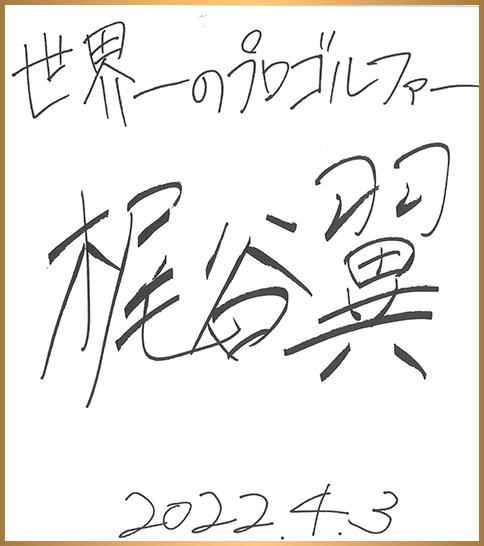 世界一のプロゴルファー
梶谷翼
2022.4.3